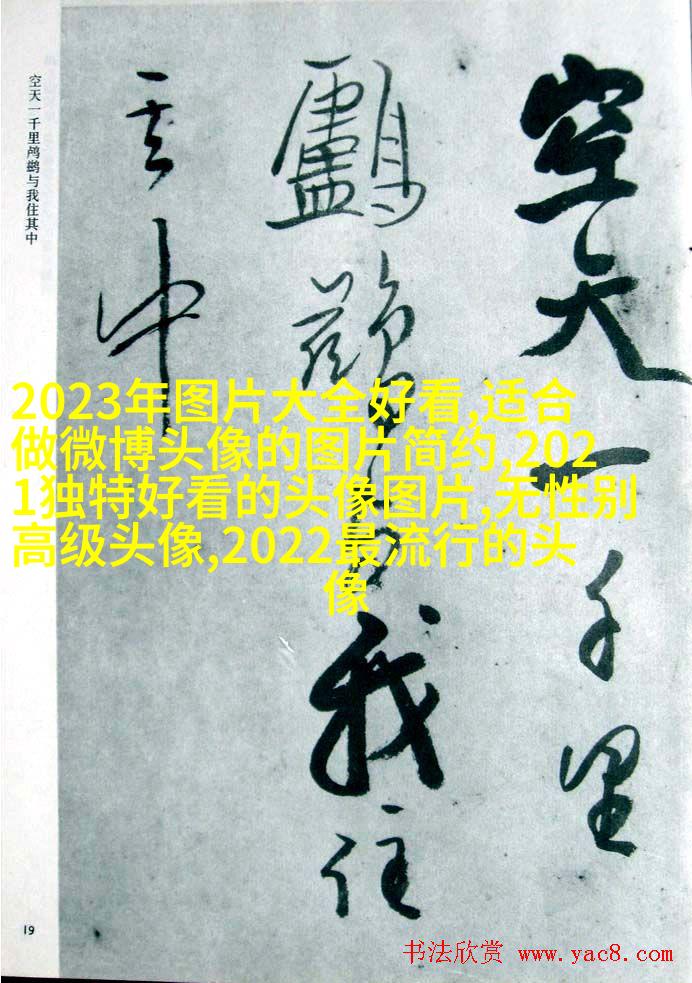 空天一千里
鸕我住
其中
空天一千里鸬鹚与我住其中
2023年图片大全好看,适合
做微博头像的图片简约,202
1独特好看的头像图片,无性别
高级头像,2022最流行的头
像
19
书法欣赏 www.yac8.com